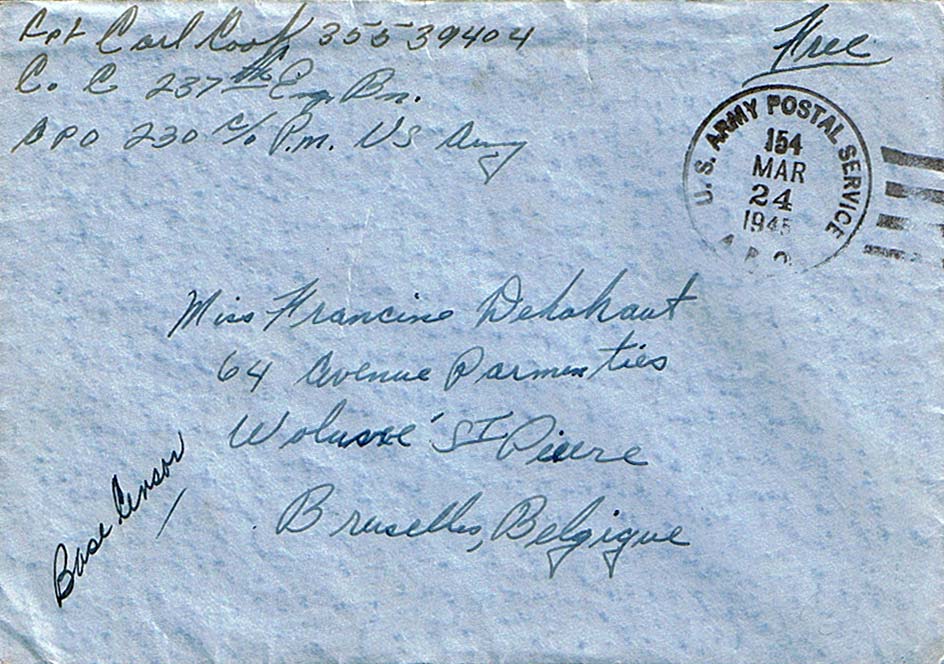 Cpt Carl Cook 35539404
Free
C. C 237th Eng. Bn.
APO 230 c/o P.M. US Army
U.S. ARMY POSTAL SERVICE
154
MAR
24
1945
A.P.O.
Miss Francine Dehohaut
64 Avenue Parmenties
Woluwé St Pierre
Bruselles, Belgique
Base Censor